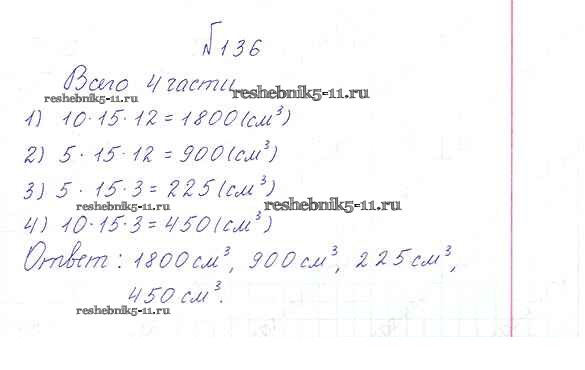 №136
Всего 4 части
reshebnik5-11.ru reshebnik5-11.ru
1) 10·15·12 = 1800 (см³)
2) 5·15·12 = 900 (см³)
3) 5·15·3 = 225 (см³)
reshebnik5-11.ru reshebnik5-11.ru
4) 10·15·3 = 450 (см³)
Ответ: 1800 см³, 900 см³, 225 см³,
450 см³.
reshebnik5-11.ru